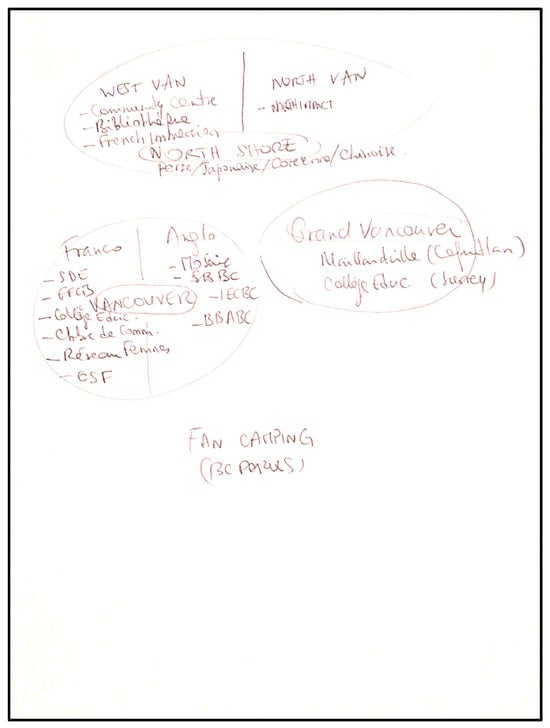 WEST VAN
- Community Centre
- Bibliothèque
- French Immersion
NORTH VAN
- NORTH IMPACT
NORTH SHORE
Perse/Japonaise/Coréenne/Chinoise.
Franco
- SDE
- FFCB
- Collège Educ.
- Chbre de Comm.
- Réseau Femmes
- ESF
Anglo
- Mosaic
- SBBC
- IECBC
- BBABC
VANCOUVER
Grand Vancouver
Maillardville (Coquitlam)
Collège Educ (Surrey)
FAN CAMPING
(BC PARKS)